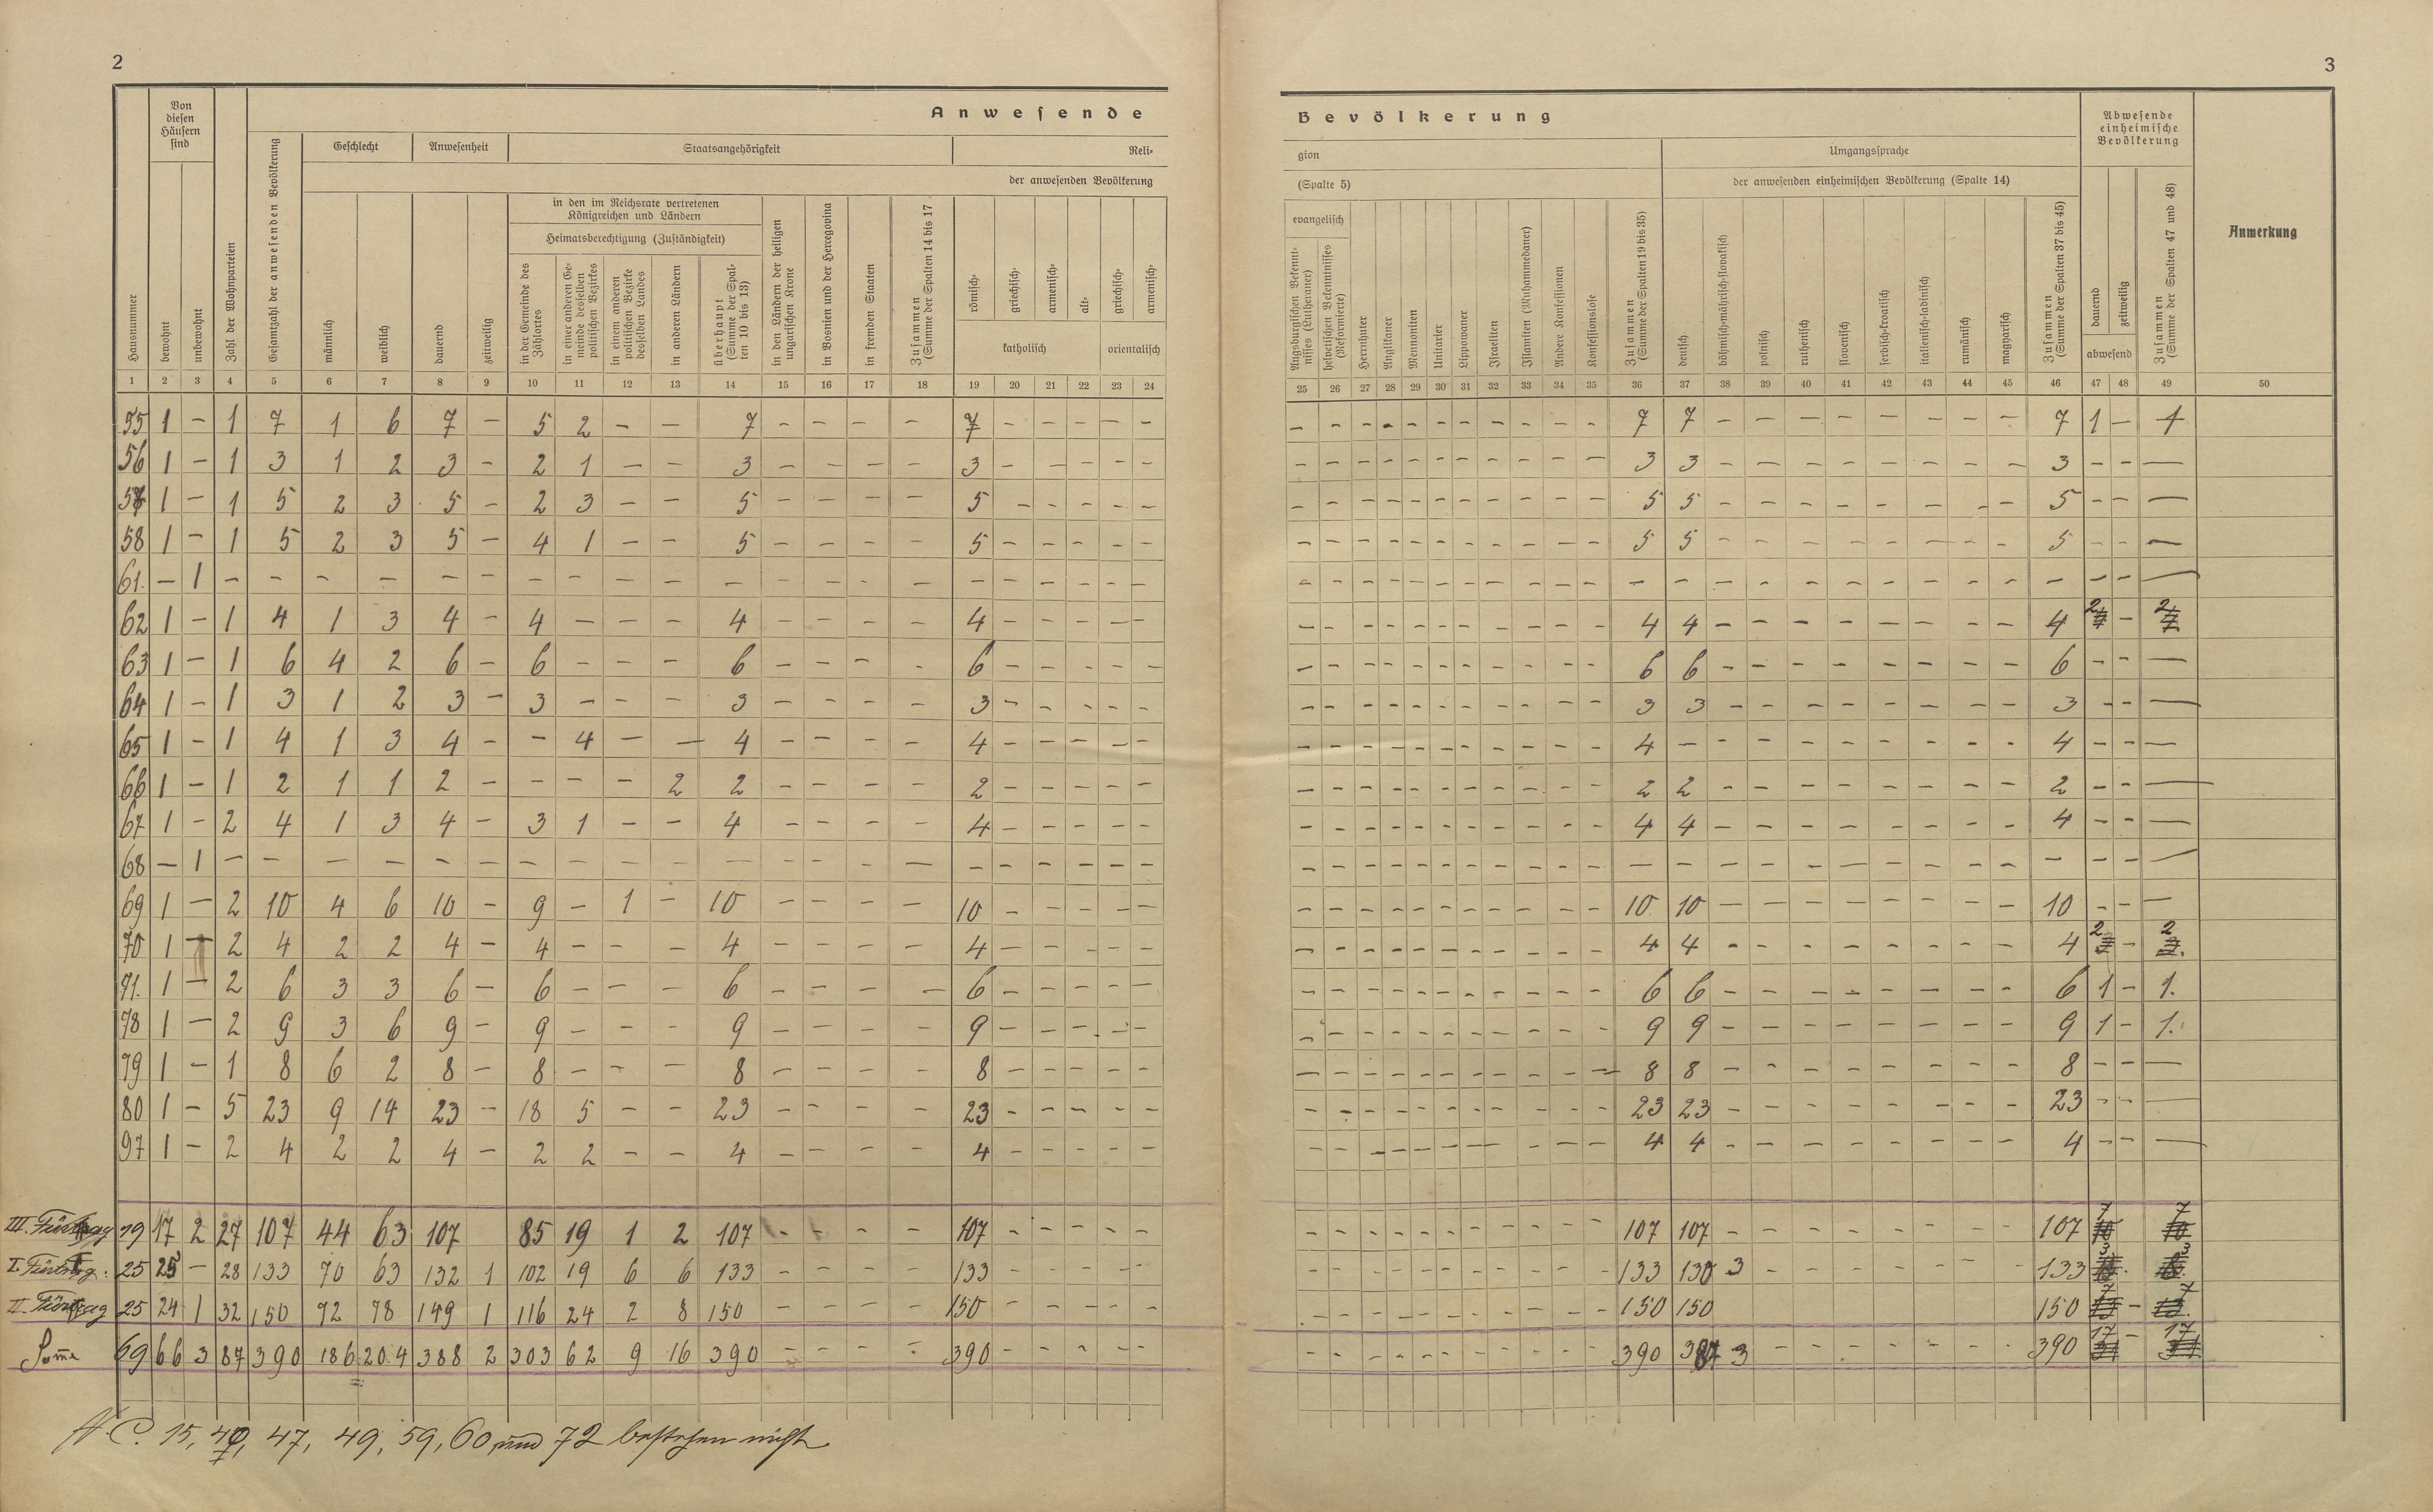 2
3
Anwesende
Bevölkerung
Hausnummer
Von diesen Häusern sind
bewohnt
unbewohnt
Zahl der Wohnparteien
Gesamtzahl der anwesenden Bevölkerung
Geschlecht
Anwesenheit
Staatsangehörigkeit
Reli-
gion
der anwesenden Bevölkerung
(Spalte 5)
männlich
weiblich
dauernd
zeitweilig
in den im Reichsrate vertretenen Königreichen und Ländern
Heimatsberechtigung (Zuständigkeit)
in der Gemeinde des Zählortes
in einer anderen Gemeinde desselben politischen Bezirkes
in einem anderen politischen Bezirke desselben Landes
in anderen Ländern
überhaupt (Summe der Spalten 10 bis 13)
in den Ländern der heiligen ungarischen Krone
in Bosnien und der Hercegovina
in fremden Staaten
Zusammen (Summe der Spalten 14 bis 17
römisch-
griechisch-
armenisch-
alt-
katholisch
griechisch-
armenisch-
orientalisch
evangelisch
Augsburgischen Bekenntnisses (Lutheraner)
helvetischen Bekenntnisses (Reformierte)
Herrnhuter
Anglikaner
Mennoniten
Unitarier
Lippowaner
Israeliten
Islamiten (Muhammedaner)
Andere Konfessionen
Konfessionslose
Zusammen (Summe der Spalten 19 bis 35)
Umgangssprache
der anwesenden einheimischen Bevölkerung (Spalte 14)
deutsch
böhmisch-mährisch-slovakisch
polnisch
ruthenisch
slovenisch
serbisch-kroatisch
italienisch-ladinisch
rumänisch
magyarisch
Zusammen (Summe der Spalten 37 bis 45)
Abwesende einheimische Bevölkerung
dauernd
zeitweilig
abwesend
Zusammen (Summe der Spalten 47 und 48)
Anmerkung
1 2 3 4 5 6 7 8 9 10 11 12 13 14 15 16 17 18 19 20 21 22 23 24 25 26 27 28 29 30 31 32 33 34 35 36 37 38 39 40 41 42 43 44 45 46 47 48 49 50
55 1 - 1 7 1 6 7 - 5 2 - - 7 - - - - 7 - - - - - - - - - - - - - - - - 7 7 - - - - - - - - 7 1 - 1
56 1 - 1 3 1 2 3 - 2 1 - - 3 - - - - 3 - - - - - - - - - - - - - - - - 3 3 - - - - - - - - 3 - - -
57 1 - 1 5 2 3 5 - 2 3 - - 5 - - - - 5 - - - - - - - - - - - - - - - - 5 5 - - - - - - - - 5 - - -
58 1 - 1 5 2 3 5 - 4 1 - - 5 - - - - 5 - - - - - - - - - - - - - - - - 5 5 - - - - - - - - 5 - - -
61. - 1 - - - - - - - - - - - - - - - - - - - - - - - - - - - - - - - - - - - - - - - - - - - - - -
62 1 - 1 4 1 3 4 - 4 - - - 4 - - - - 4 - - - - - - - - - - - - - - - - 4 4 - - - - - - - - 4 2 - 2
63 1 - 1 6 4 2 6 - 6 - - - 6 - - - - 6 - - - - - - - - - - - - - - - - 6 6 - - - - - - - - 6 - - -
64 1 - 1 3 1 2 3 - 3 - - - 3 - - - - 3 - - - - - - - - - - - - - - - - 3 3 - - - - - - - - 3 - - -
65 1 - 1 4 1 3 4 - - 4 - - 4 - - - - 4 - - - - - - - - - - - - - - - - 4 - - - - - - - - - 4 - - -
66 1 - 1 2 1 1 2 - - - - 2 2 - - - - 2 - - - - - - - - - - - - - - - - 2 2 - - - - - - - - 2 - - -
67 1 - 2 4 1 3 4 - 3 1 - - 4 - - - - 4 - - - - - - - - - - - - - - - - 4 4 - - - - - - - - 4 - - -
68 - 1 - - - - - - - - - - - - - - - - - - - - - - - - - - - - - - - - - - - - - - - - - - - - - -
69 1 - 2 10 4 6 10 - 9 - 1 - 10 - - - - 10 - - - - - - - - - - - - - - - - 10 10 - - - - - - - - 10 - - -
70 1 - 2 4 2 2 4 - 4 - - - 4 - - - - 4 - - - - - - - - - - - - - - - - 4 4 - - - - - - - - 4 2 - 2
71. 1 - 2 6 3 3 6 - 6 - - - 6 - - - - 6 - - - - - - - - - - - - - - - - 6 6 - - - - - - - - 6 1 - 1.
78 1 - 2 9 3 6 9 - 9 - - - 9 - - - - 9 - - - - - - - - - - - - - - - - 9 9 - - - - - - - - 9 1 - 1.
79 1 - 1 8 6 2 8 - 8 - - - 8 - - - - 8 - - - - - - - - - - - - - - - - 8 8 - - - - - - - - 8 - - -
80 1 - 5 23 9 14 23 - 18 5 - - 23 - - - - 23 - - - - - - - - - - - - - - - - 23 23 - - - - - - - - 23 - - -
97 1 - 2 4 2 2 4 - 2 2 - - 4 - - - - 4 - - - - - - - - - - - - - - - - 4 4 - - - - - - - - 4 - - -
III. Fürtrag 19 17 2 27 107 44 63 107 85 19 1 2 107 - - - - 107 - - - - - - - - - - - - - - - - 107 107 - - - - - - - - 107 7 7
I. Fürtrag: 25 25 - 28 133 70 63 132 1 102 19 6 6 133 - - - - 133 - - - - - - - - - - - - - - - - 133 130 3 - - - - - - - 133 3 3
II. Fürtrag 25 24 1 32 150 72 78 149 1 116 24 2 8 150 - - - - 150 - - - - - - - - - - - - - - - - 150 150 150 7 - 7
Suma 69 66 3 87 390 186 204 388 2 303 62 9 16 390 - - - - 390 - - - - - - - - - - - - - - - - 390 387 3 - - - - - - - 390 17 - 17
N. C. 15, 40, 47, 49, 59, 60 und 72 bestehen nicht